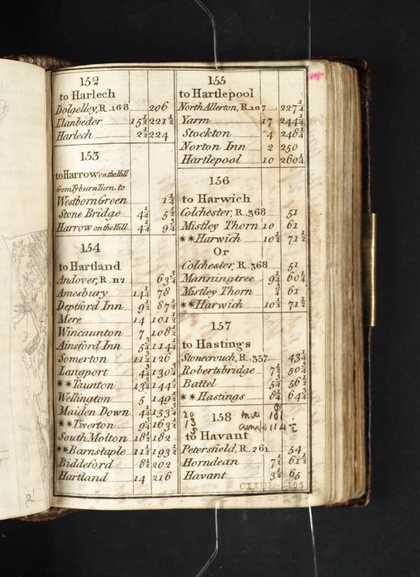 152
to Harlech
Dolgelley, R. 168 206
Llanbeder 15¼ 221¼
Harlech 2¾ 224
153
to Harrow on the Hill
from Tyburn Turn. to
Westborn Green 1¼
Stone Bridge 4¼ 5½
Harrow on the Hill 4¼ 9¾
154
to Hartland
Andover, R. 112 63¾
Amesbury 14¼ 78
Deptford Inn 9½ 87½
Mere 14 101½
Wincaunton 7 108½
Ainsford Inn 5¾ 114¼
Somerton 11¾ 126
Langport 4¾ 130¾
**Taunton 13¾ 144½
Wellington 5 149½
Maiden Down 4¼ 153¾
**Tiverton 9¾ 163½
South Molton 18½ 182
**Barnstaple 11½ 193½
Biddeford 8½ 202
Hartland 14 216
155
to Hartlepool
North Allerton, R. 107 227¼
Yarm 17 244¼
Stockton 4 248¼
Norton Inn 2 250
Hartlepool 10 260¼
156
to Harwich
Colchester, R. 368 51
Mistley Thorn 10 61
**Harwich 10½ 71½
Or
Colchester, R. 368 51
Manningtree 9¼ 60¼
Mistley Thorn ¾ 61
**Harwich 10½ 71½
157
to Hastings
Stonecrouch, R. 357 43¼
Robertsbridge 7½ 50¾
Battel 5¾ 56½
**Hastings 8¼ 64¾
158
to Havant
Petersfield, R. 261 54
Horndean 7½ 61½
Havant 3½ 65